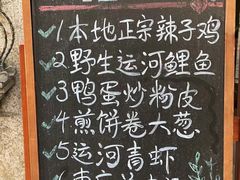 ✓1本地正宗辣子鸡
✓2野生运河鲤鱼
✓3鸭蛋炒粉皮
✓4煎饼卷大葱
✓5运河青虾